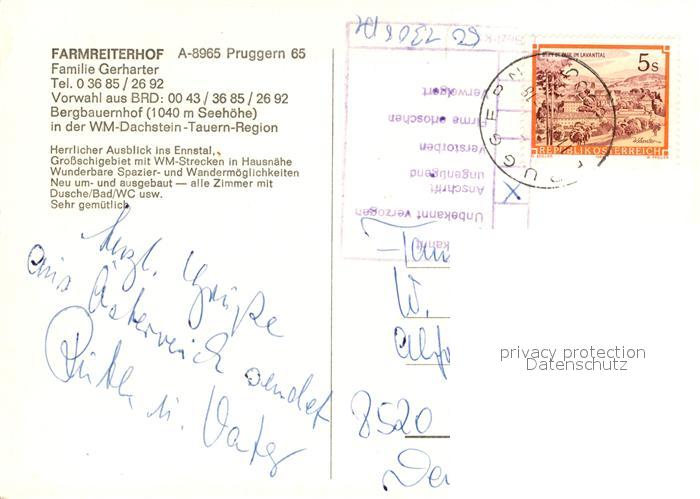 FARMREITERHOF A-8965 Pruggern 65
Familie Gerharter
Tel. 0 36 85 / 26 92
Vorwahl aus BRD: 00 43 / 36 85 / 26 92
Bergbauernhof (1040 m Seehöhe)
in der WM-Dachstein-Tauern-Region
Herrlicher Ausblick ins Ennstal,
Großschigebiet mit WM-Strecken in Hausnähe
Wunderbare Spazier- und Wandermöglichkeiten
Neu um- und ausgebaut — alle Zimmer mit
Dusche/Bad/WC usw.
Sehr gemütlich
Herzl. Grüße
aus Österreich sendet
u. Vater
Verweigert
Firma erloschen
Verstorben
Anschrift
ungenügend
Unbekannt verzogen
kannt
X
ST. PAUL IM LAVANTTAL
5 S
REPUBLIK ÖSTERREICH
PRUGGERN
Fam
W.
8520
privacy protection
Datenschutz